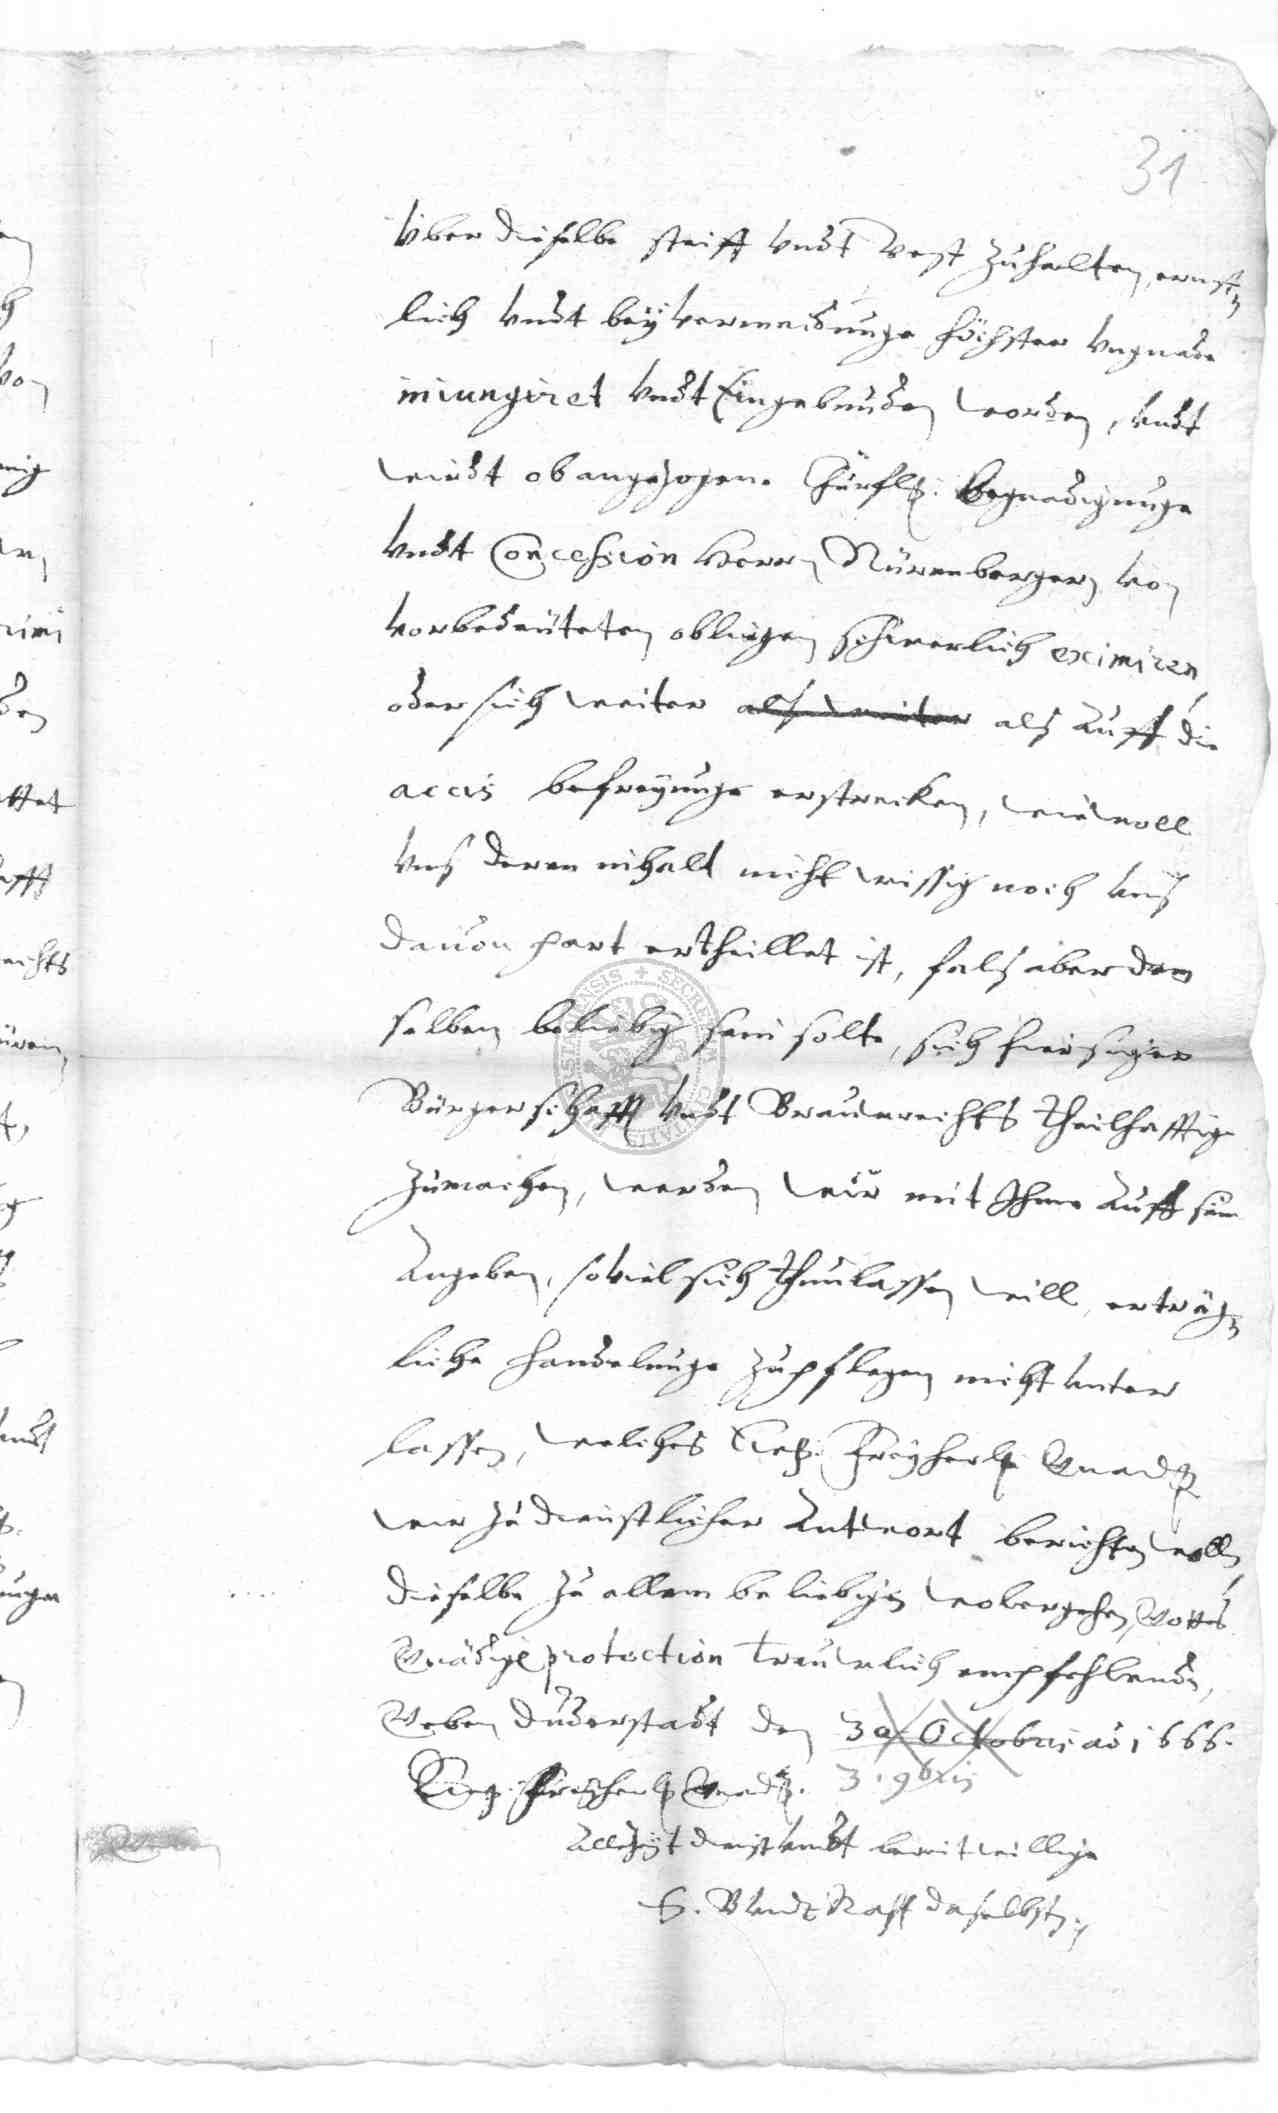 31
Vber dieselbe steiff vndt vest zuhalten, ernst
lich vndt beÿ vermeidunge höchster vngnade
iniungiret vndt Eingebunden worden, vndt
wirdt obangezogene Churfl: begnadigunge
vndt Concession Herrn Nürenbergern von
vorbedeüteten obligen schwerlich eximiren
oder sich weiter als weiter als Auff die
accis befreyunge erstrecken, wiewoll
vnß deren inhalt nicht wissig noch vnß
dauon part ertheillet ist, falß aber dem
selben beliebig sein solte, sich hiesiger
Bürgerschafft vndt Brauwrechts theilhafftig
zumachen, werden wir mit Ihme Auff sein
Angeben, soviel sich thun lassen will, erträg
liche handelunge zupflegen nicht vnter
lassen, welches Freyherl: Gnad:
wir zu dienstlicher Antwort berichten wolln
dieselbe zu allem beliebigen wobergehen, Gottes
Gnädige protection trewlich empfehlende,
Geben Duderstadt den 30 Octobris ao 1666.
3. 9bris
Freyherl: Gnad:
Allezeit dienst vndt bereitwillige
B. vndt Rath daselbsten